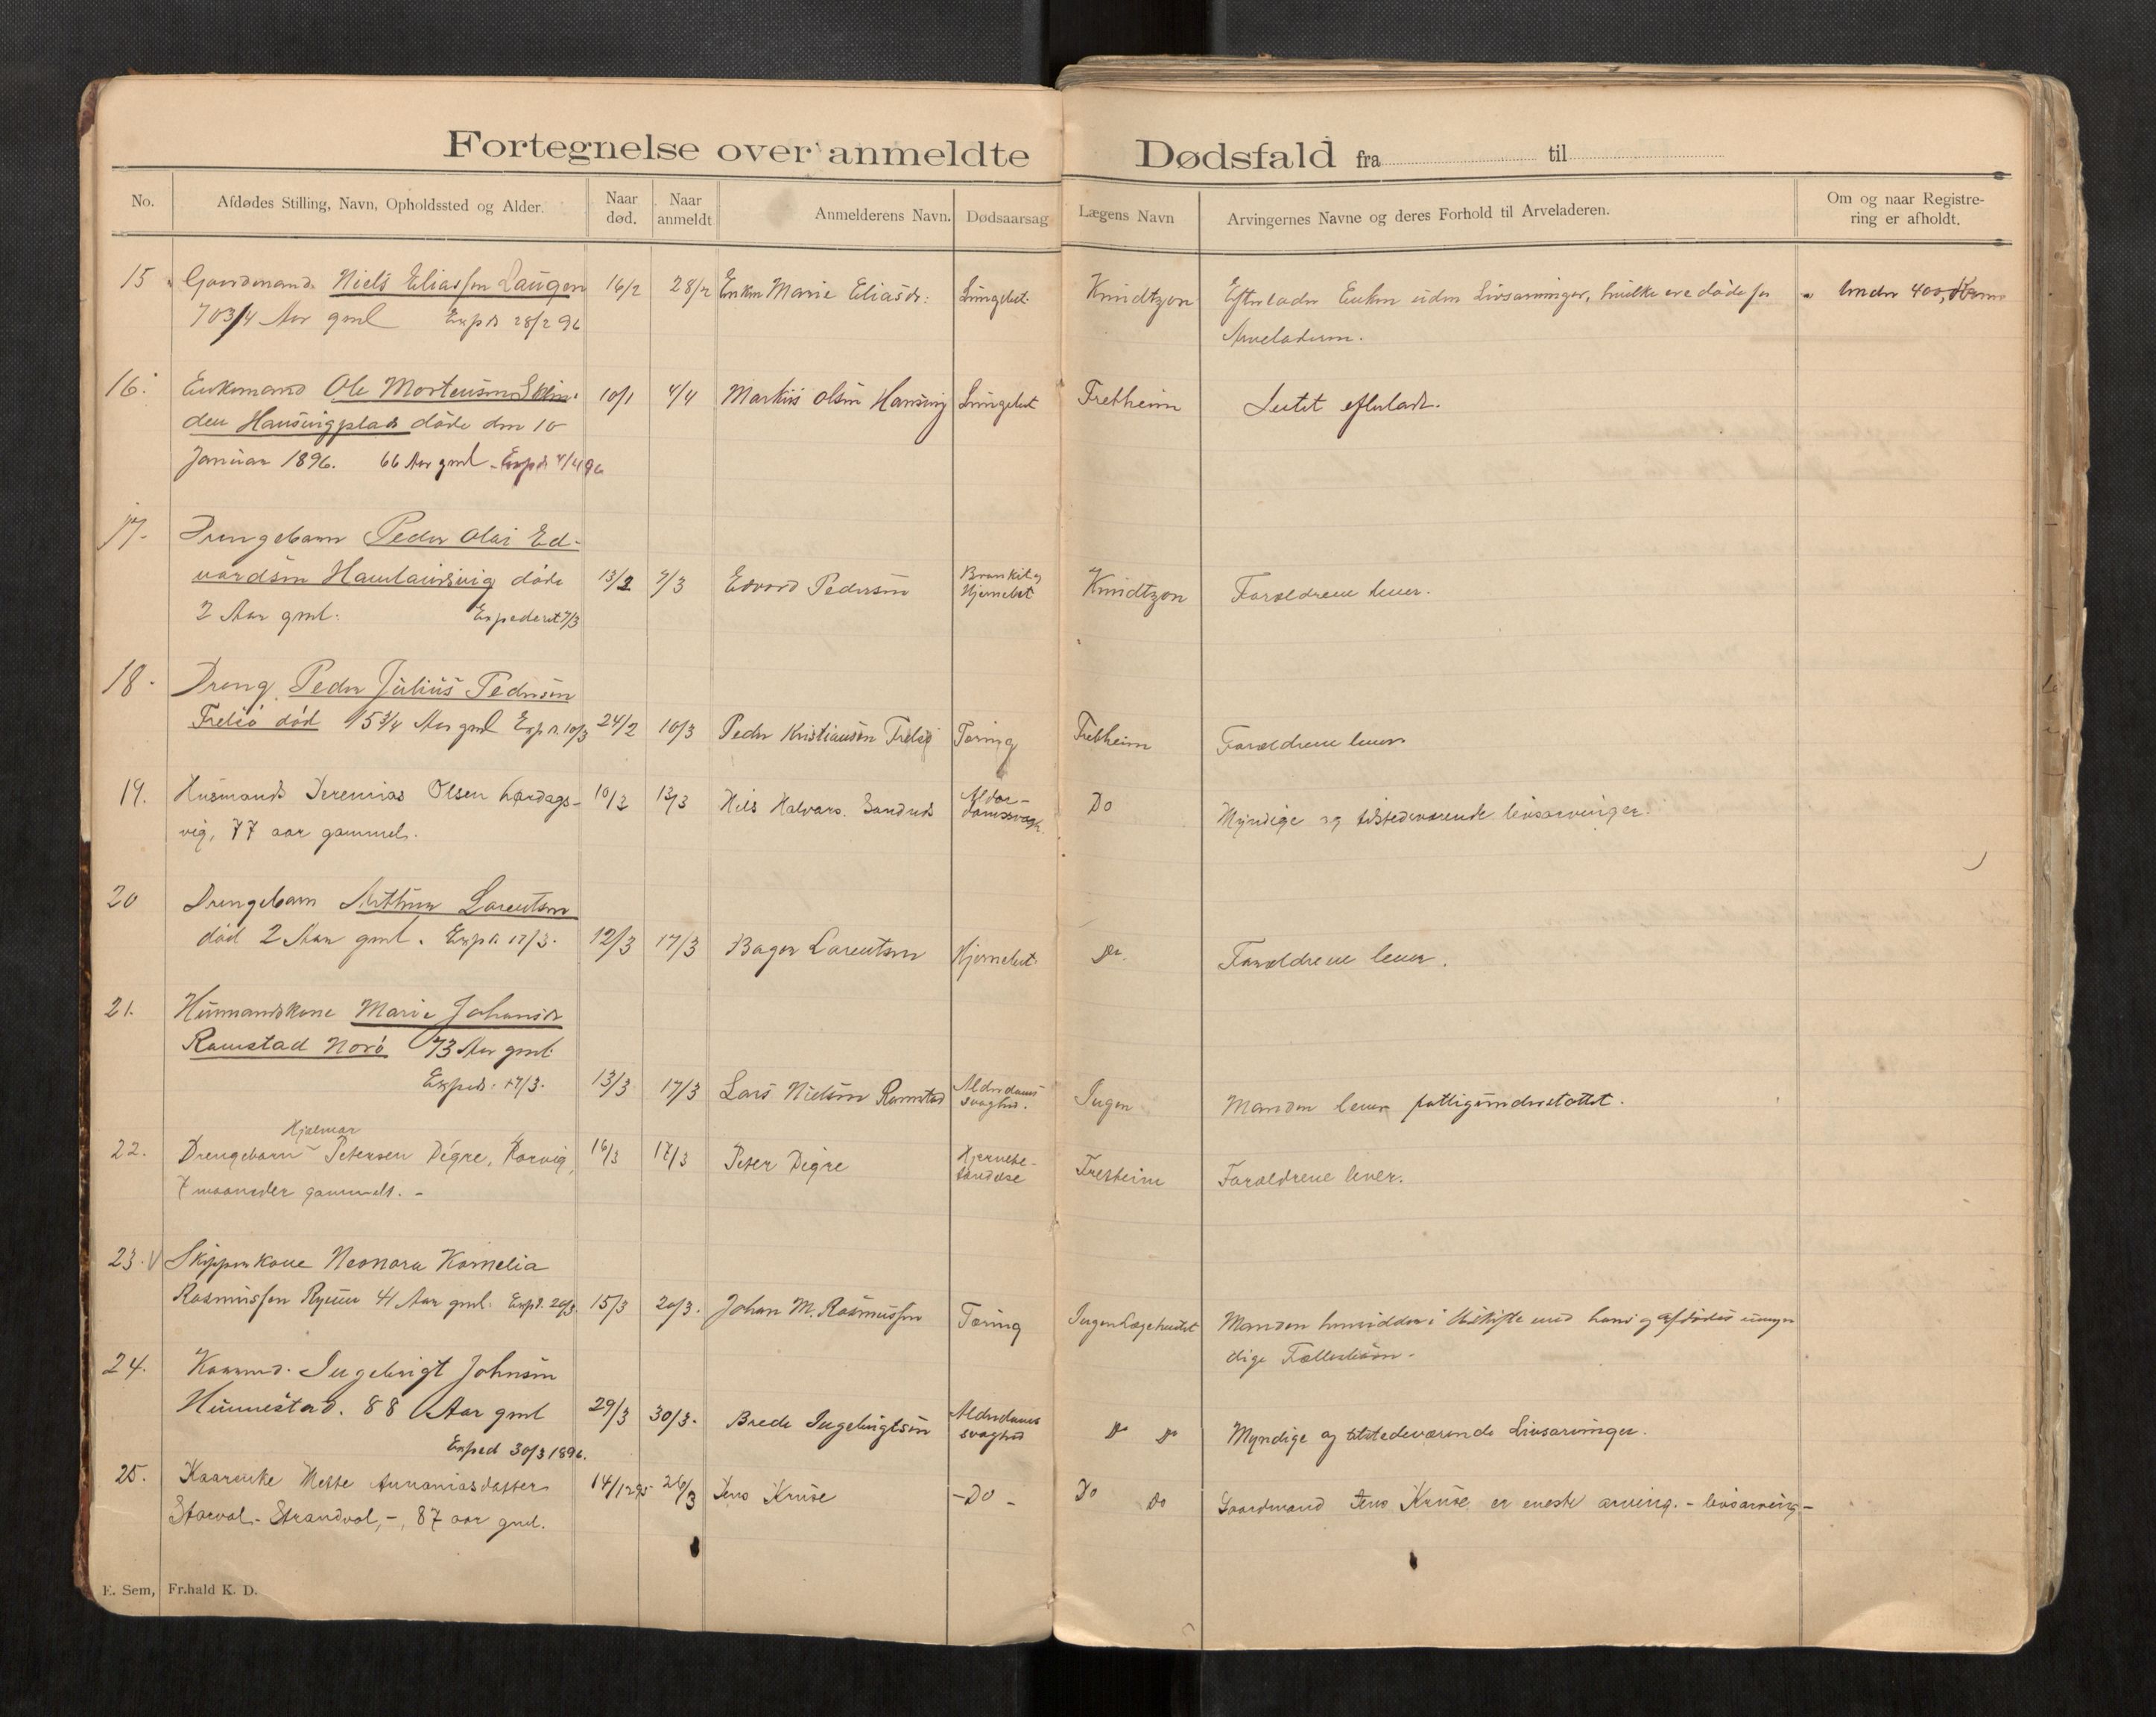 Fortegnelse over anmeldte Dødsfald fra til
No.
Afdødes Stilling, Navn, Opholdssted og Alder.
Naar død.
Naar anmeldt
Anmelderens Navn.
Dødsaarsag
Lægens Navn
Arvingernes Navne og deres Forhold til Arveladeren.
Om og naar Registre-
ring er afholdt.
15 Gaardmand Niels Eliassen Laugen 16/2 28/2 Enken Marie Eliasdr: Lungebet. Knudtzon Efterlader Enken uden Livsarvinger, hvilke ere døde før Under 400, Kroner
70 3/4 Aar gml Expd 28/2 96 Arveladeren.
16. Enkemand Ole Mortensen 10/1 4/4 Markus Olsen Hansvig Lungebet Fretheim Intet efterladt.
den Hansvigplads døde den 10
Januar 1896. 66 Aar gml - Expd 4/4 96
17. Drengebarn Peder Olai Ed-
vardsen døde 13/2 7/3 Edvard Pedersen Bronkit og Hjernebet Knudtzon Forældrene lever.
2 Aar gml. Expederet 7/3
18. Dreng Peder Julius Pedersen
Frelsø død 15 3/4 Aar gml Expd. 10/3 24/2 10/3 Peder Kristiansen Frelsø Tæring Fretheim Forældrene lever
19. Husmand Jeremias Olsen Lardags- 10/3 13/3 Nils Halvars. Sandnes Alder-
domssvagh. Do Myndige og tilstedeværende livsarvinger.
vig, 77 aar gammel.
20 Drengebarn Arthur Lorentsen
død 2 Aar gml. Expd. 17/3. 12/3 17/3 Bager Lorentsen Hjernebet. Do. Forældrene lever.
21. Husmandskone Marie Johansdr
Ramstad Nærø 73 Aar gml.
Exped. 17/3. 13/3 17/3 Lars Nielsen Ramstad Alderdoms
svaghed. Ingen Manden lever fattigunderstøttet.
Hjelmar
22. Drengebarn Petersen Digre, Rørvig, 16/3 17/3 Peter Digre Hjernebe-
tændelse Fretheim Forældrene lever.
7 maaneder gammelt. -
23. V Skipperkone Neonora Kornelia
Rasmussen Ryum 41 Aar gml. Expd. 20/3. 15/3 20/3. Johan M. Rasmussen Tæring Ingen Læge hentet Manden hensidder i Uskifte med hans og afdødes umyn
dige Fællesbørn -
24. Kaarmd. Ingebrigt Johnsen
Hunnestad. 88 Aar gml 29/3 30/3. Brede Ingebrigtsen Alderdoms
svaghed Do Do Myndige og tilstedeværende Livsarvinger.
Exped 30/3 1896.
25. Kaarenke Mette Annaniasdatter 14/12 95 26/3 Jens Kruse - Do - Do Do Gaardmand Jens Kruse er eneste arving. - livsarving -
Starval - Strandval, -, 87 aar gml.
E. Sem, Fr.hald K. D.